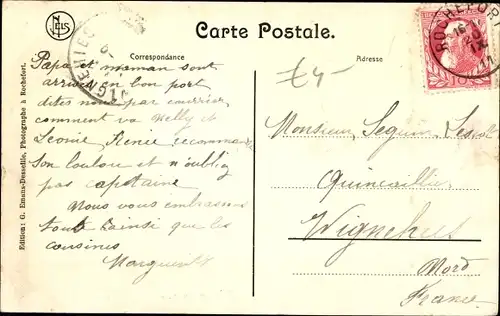 NELS
Carte Postale.
Correspondance
Adresse
ROCHEFORT
£4-
Papa et maman sont
arrivés en bon port
dites nous par courrier
comment va Nelly &
Léonie Renée recommande
son loulou et n'oubliez
pas capitaine
Nous vous embrassons
tous ainsi que les
cousines
Marguerite
Monsieur Seguin
Quincaillier
Wignehies
Nord
France
Edition: G. Emans-Dessaille, Photographe à Rochefort.